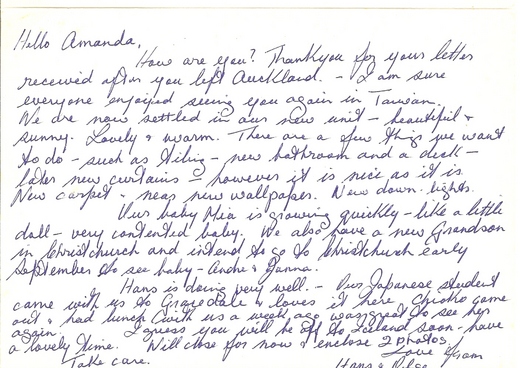 Hello Amanda,
How are you? Thankyou for your letter
received after you left Auckland. - I am sure
everyone enjoyed seeing you again in Taiwan.
We are now settled in our new unit - beautiful &
sunny. Lovely & warm. There are a few things we want
to do - such as tiling - new bathroom and a deck -
later new curtains - however it is nice as it is.
New carpet & near new wallpaper. New down-lights.
Our baby Mia is growing quickly - like a little
doll - very contented baby. We also have a new Grandson
in Christchurch and intend to go to Christchurch early
September to see baby - Andre &
Hans is doing very well. - Our Japanese student
came with us to & loves it here. came
out & had lunch with us a week ago was great to see her
again. I guess you will be off to soon - have
a lovely time. Will close for now & enclose 2 photos.
Take care. Love from
Hans &